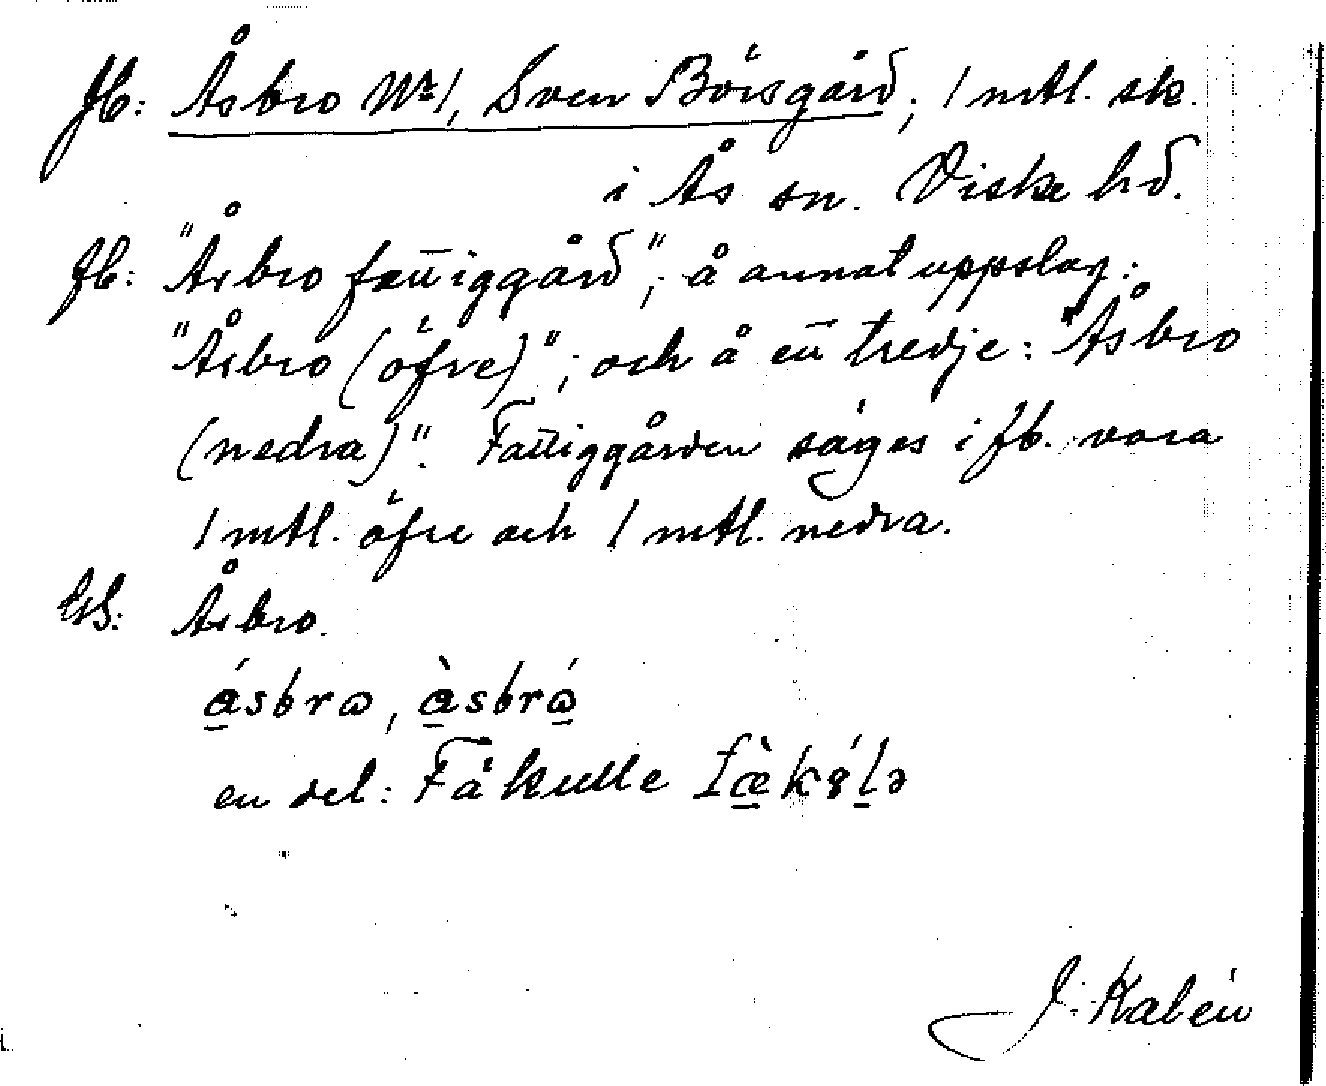 Jb: Åsbro Nr 1, Sven Börsgård, 1 mtl. sk.
i Ås sn. Viske hd.
Jb: "Åsbro fattiggård"; å annat uppslag:
"Åsbro (öfre)"; och å ett tredje: "Åsbro
(nedra)". Fattiggården säges i Jb. vara
1 mtl. öfre och 1 mtl. nedra.
GS: Åsbro.
en del: Fäkulle
J. Kalén